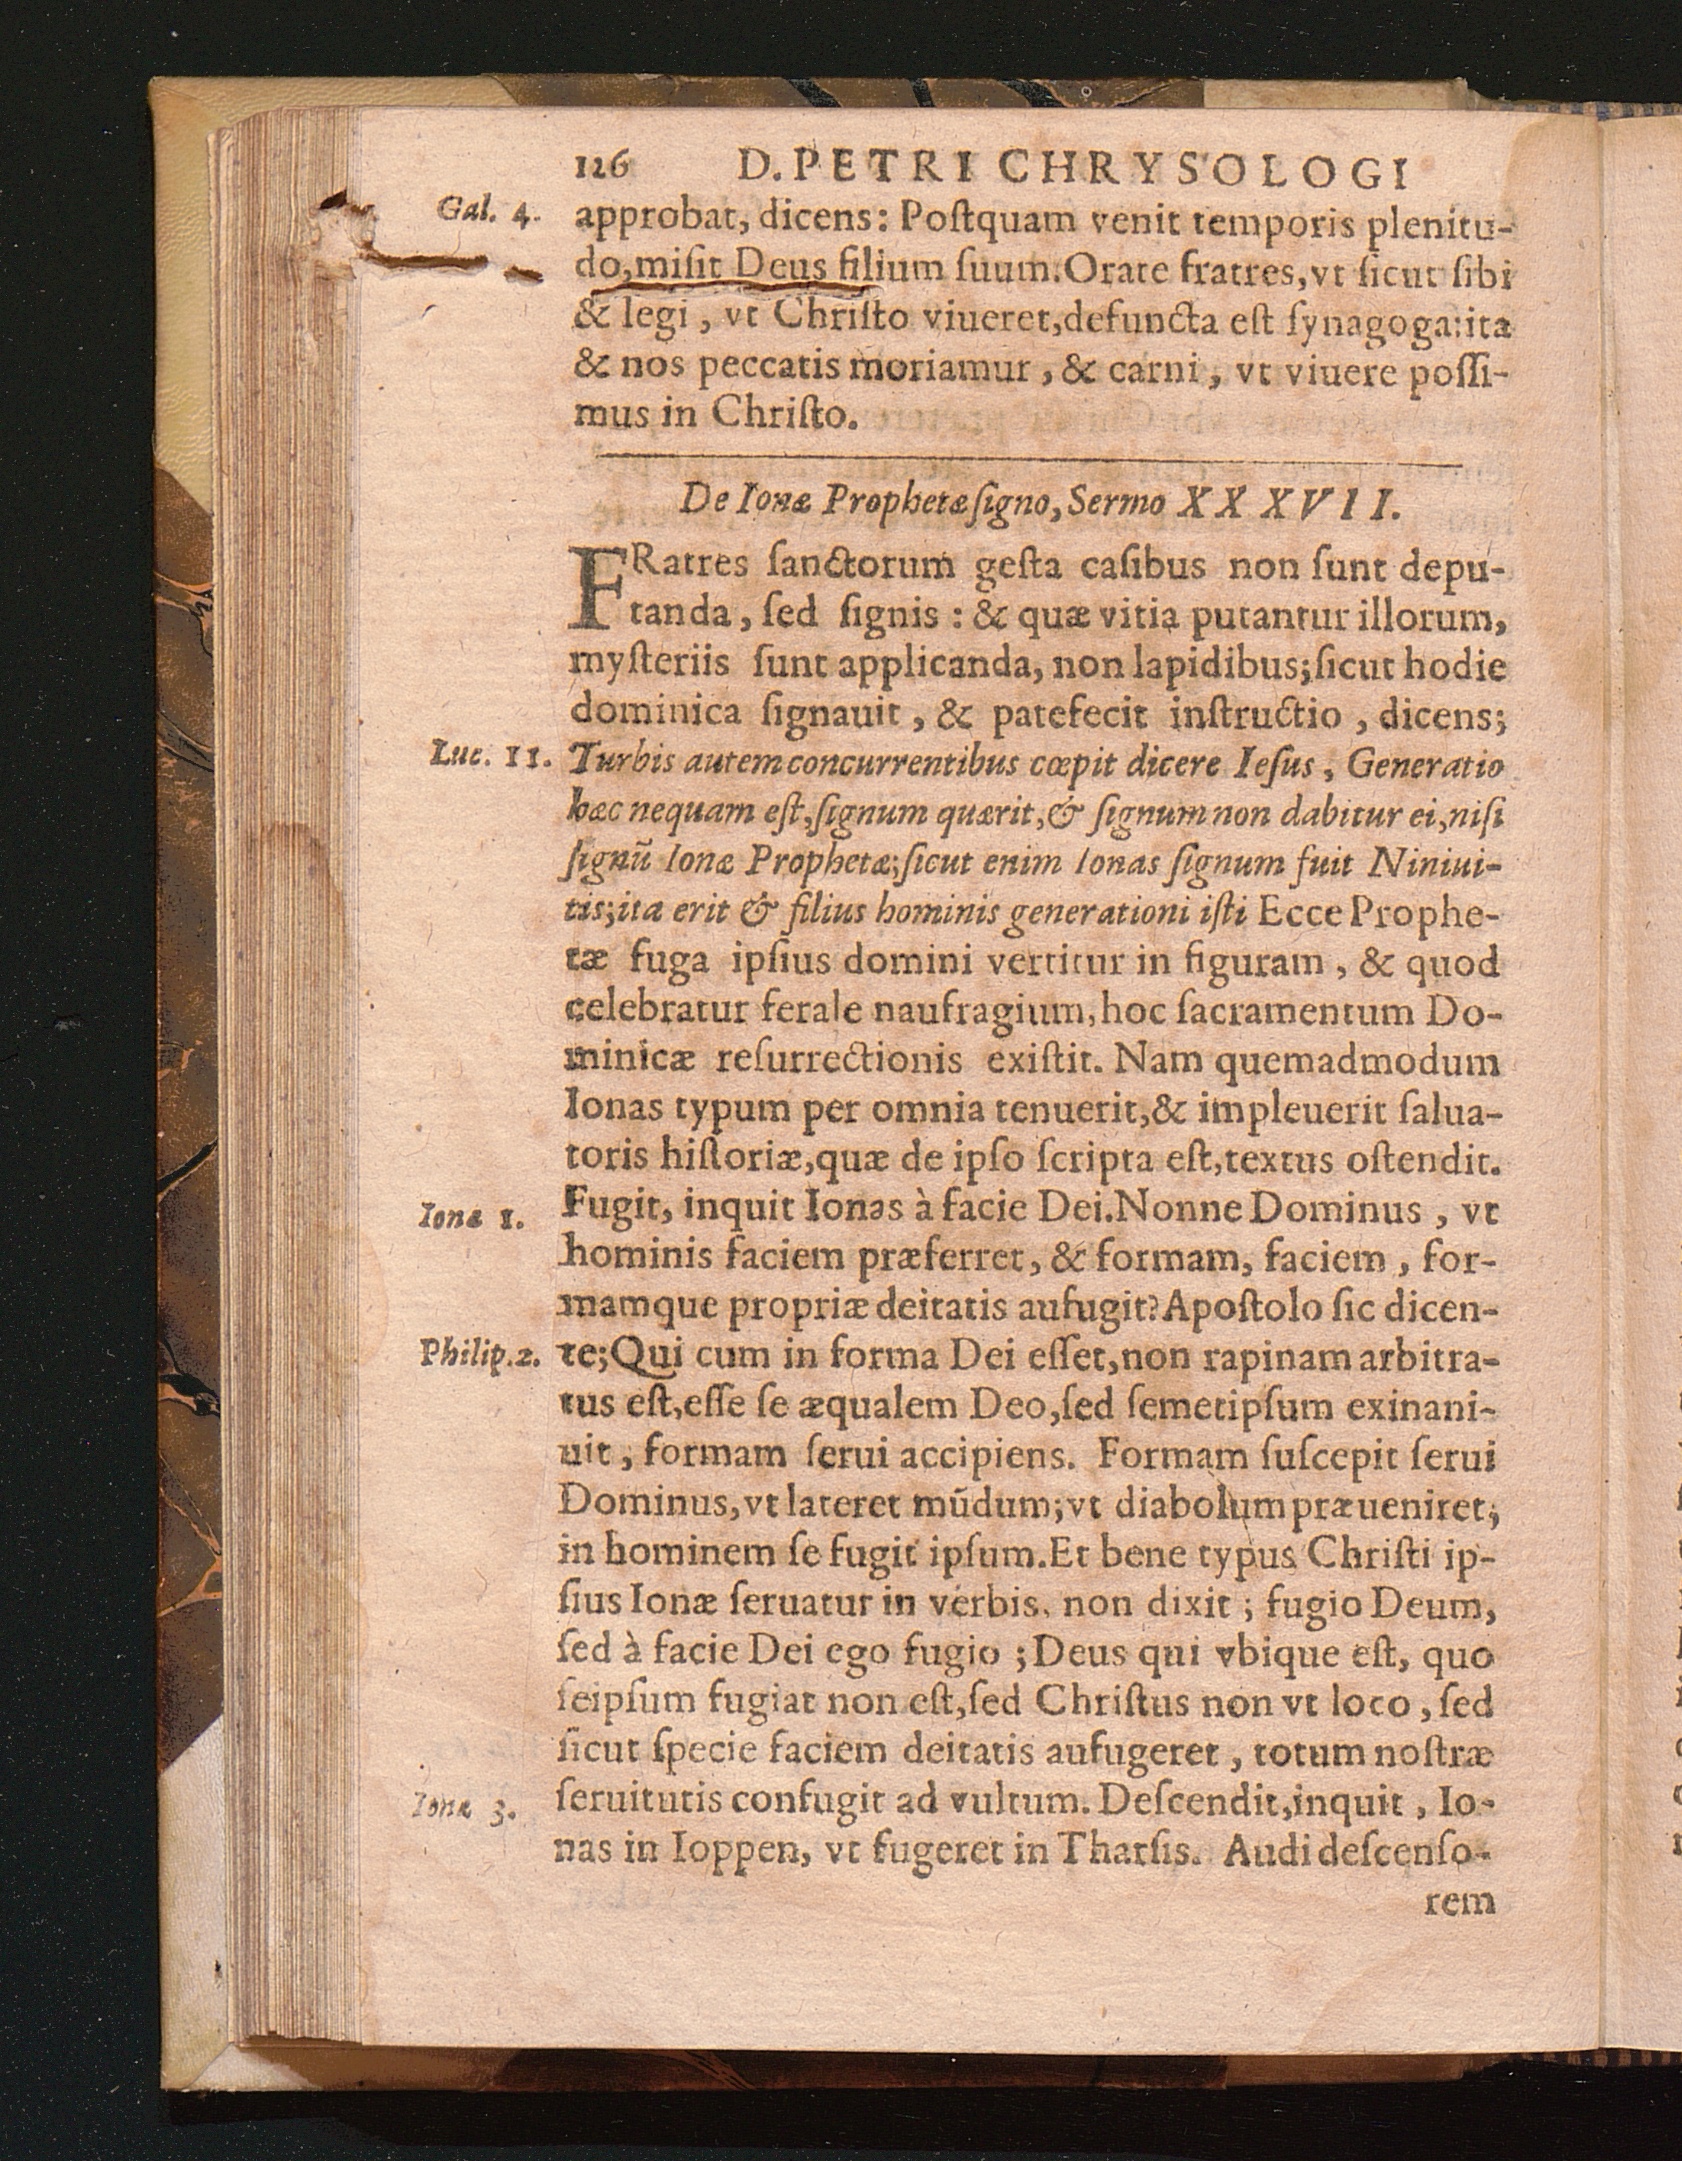 126 D. PETRI CHRYSOLOGI
Gal. 4. approbat, dicens: Poſtquam venit temporis plenitu-
do,miſit Deus filium ſuum.Orate fratres,vt ſicut ſibi
& legi , vt Chriſto viueret,defuncta eſt ſynagoga:ita
& nos peccatis moriamur , & carni , vt viuere poſſi-
mus in Chriſto.
De Ionæ Prophetæ ſigno, Sermo XXXVII.
FRatres ſanctorum geſta caſibus non ſunt depu-
tanda , ſed ſignis : & quæ vitia putantur illorum,
myſteriis ſunt applicanda, non lapidibus;ſicut hodie
dominica ſignauit , & patefecit inſtructio , dicens;
Luc. 11. Turbis autem concurrentibus cœpit dicere Ieſus , Generatio
hæc nequam eſt,ſignum quærit,& ſignum non dabitur ei,niſi
ſignũ Ionæ Prophetæ;ſicut enim Ionas ſignum fuit Niniui-
tis;ita erit & filius hominis generationi iſti Ecce Prophe-
tæ fuga ipſius domini vertitur in figuram , & quod
celebratur ferale naufragium,hoc ſacramentum Do-
minicæ reſurrectionis exiſtit. Nam quemadmodum
Ionas typum per omnia tenuerit,& impleuerit ſalua-
toris hiſtoriæ,quæ de ipſo ſcripta eſt,textus oſtendit.
Ionæ 1. Fugit, inquit Ionas à facie Dei.Nonne Dominus , vt
hominis faciem præferret , & formam, faciem , for-
mamque propriæ deitatis aufugit?Apoſtolo ſic dicen-
Philip.2. te;Qui cum in forma Dei eſſet,non rapinam arbitra-
tus eſt,eſſe ſe æqualem Deo,ſed ſemetipſum exinani-
uit , formam ſerui accipiens. Formam ſuſcepit ſerui
Dominus,vt lateret mũdum;vt diabolum præueniret;
in hominem ſe fugit ipſum.Et bene typus Chriſti ip-
ſius Ionæ ſeruatur in verbis, non dixit ; fugio Deum,
ſed à facie Dei ego fugio ;Deus qui vbique eſt, quo
ſeipſum fugiat non eſt,ſed Chriſtus non vt loco , ſed
ſicut ſpecie faciem deitatis aufugeret , totum noſtræ
Ionæ 3. ſeruitutis confugit ad vultum. Deſcendit,inquit , Io-
nas in Ioppen, vt fugeret in Tharſis. Audi deſcenſo-
rem